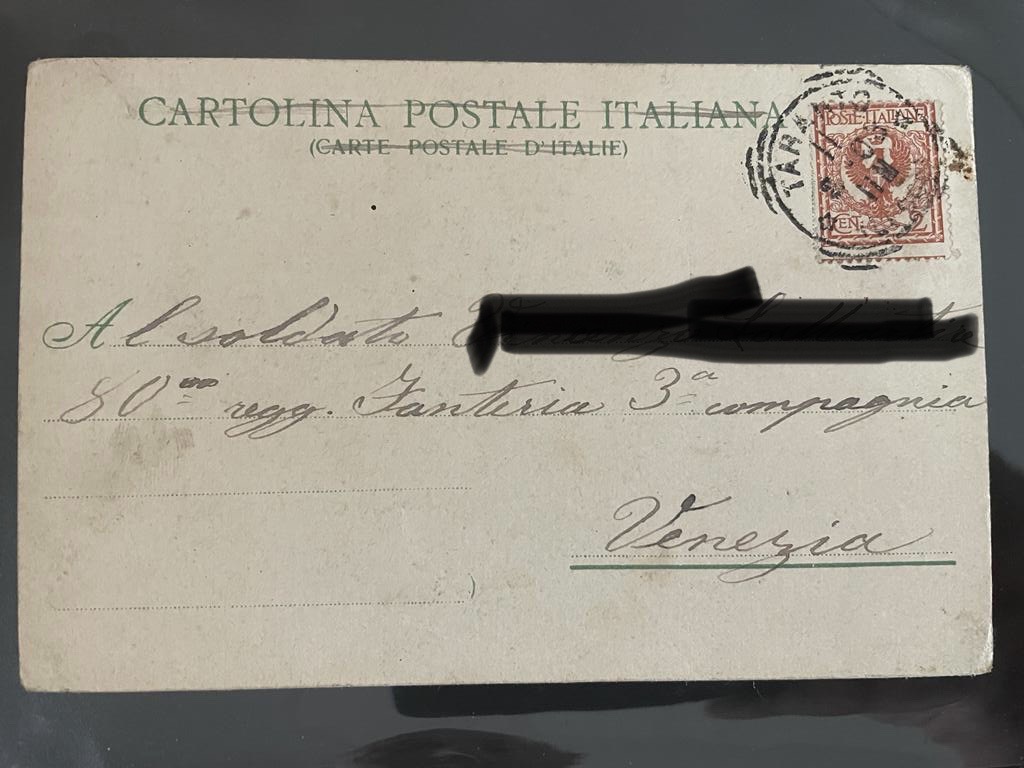 CARTOLINA POSTALE ITALIANA
(CARTE POSTALE D'ITALIE)
POSTE ITALIANE
CEN. 2
Al soldato
80mo regg. Fanteria 3a compagnia
Venezia